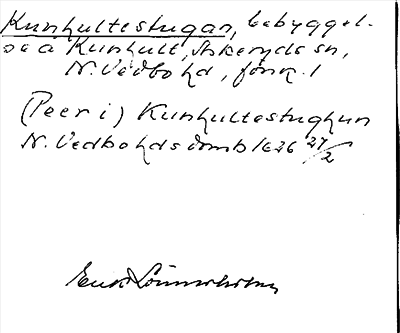 Kunhultestugan, bebyggel-
se å Kunhult, Askeryds sn,
N. Vedbo hd, försv. 1
(Peer i) Kunhultestughun
N. Vedbo hds domb 1626 27/2